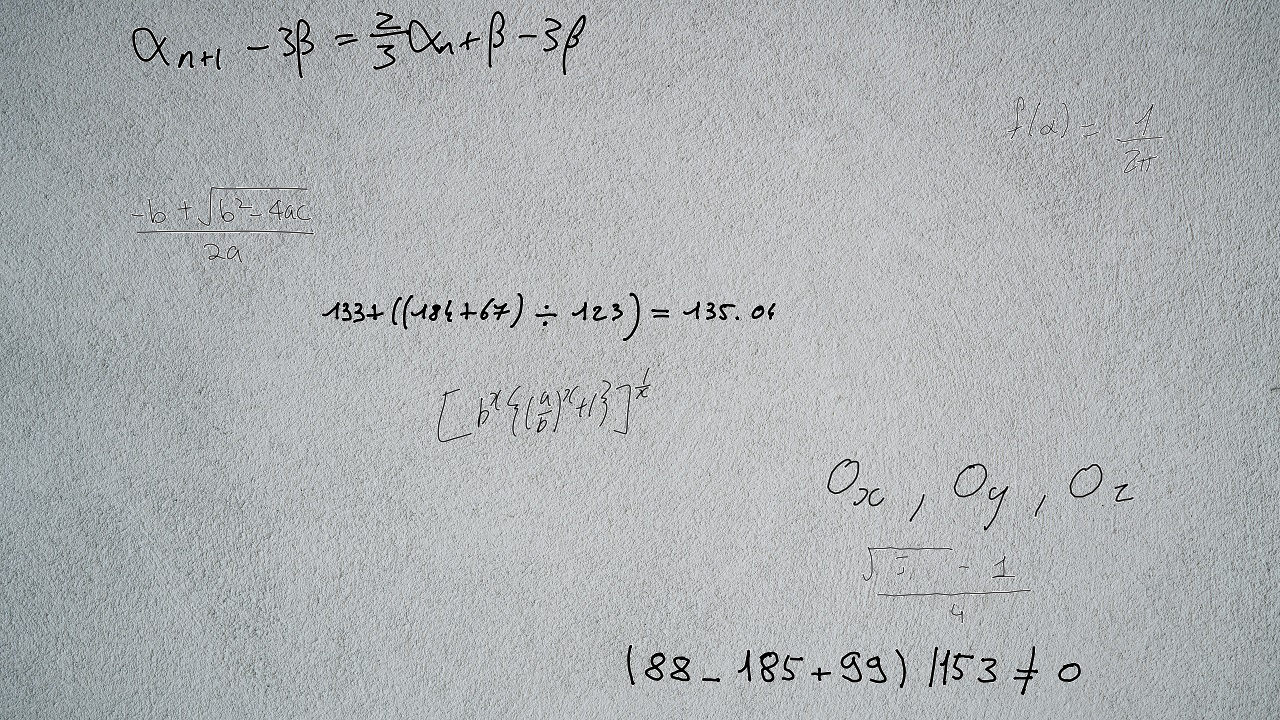 αₙ₊₁ − 3β = 2/3 αₙ + β − 3β
f(α) = 1/2π
(-b + √(b² - 4ac))/2a
133+((184+67) ÷ 123) = 135.04
[b^x{(a/b)^x+1}]^(1/x)
Ox , Oy , Oz
(√5 - 1)/4
(88 - 185 + 99) /153 ≠ 0